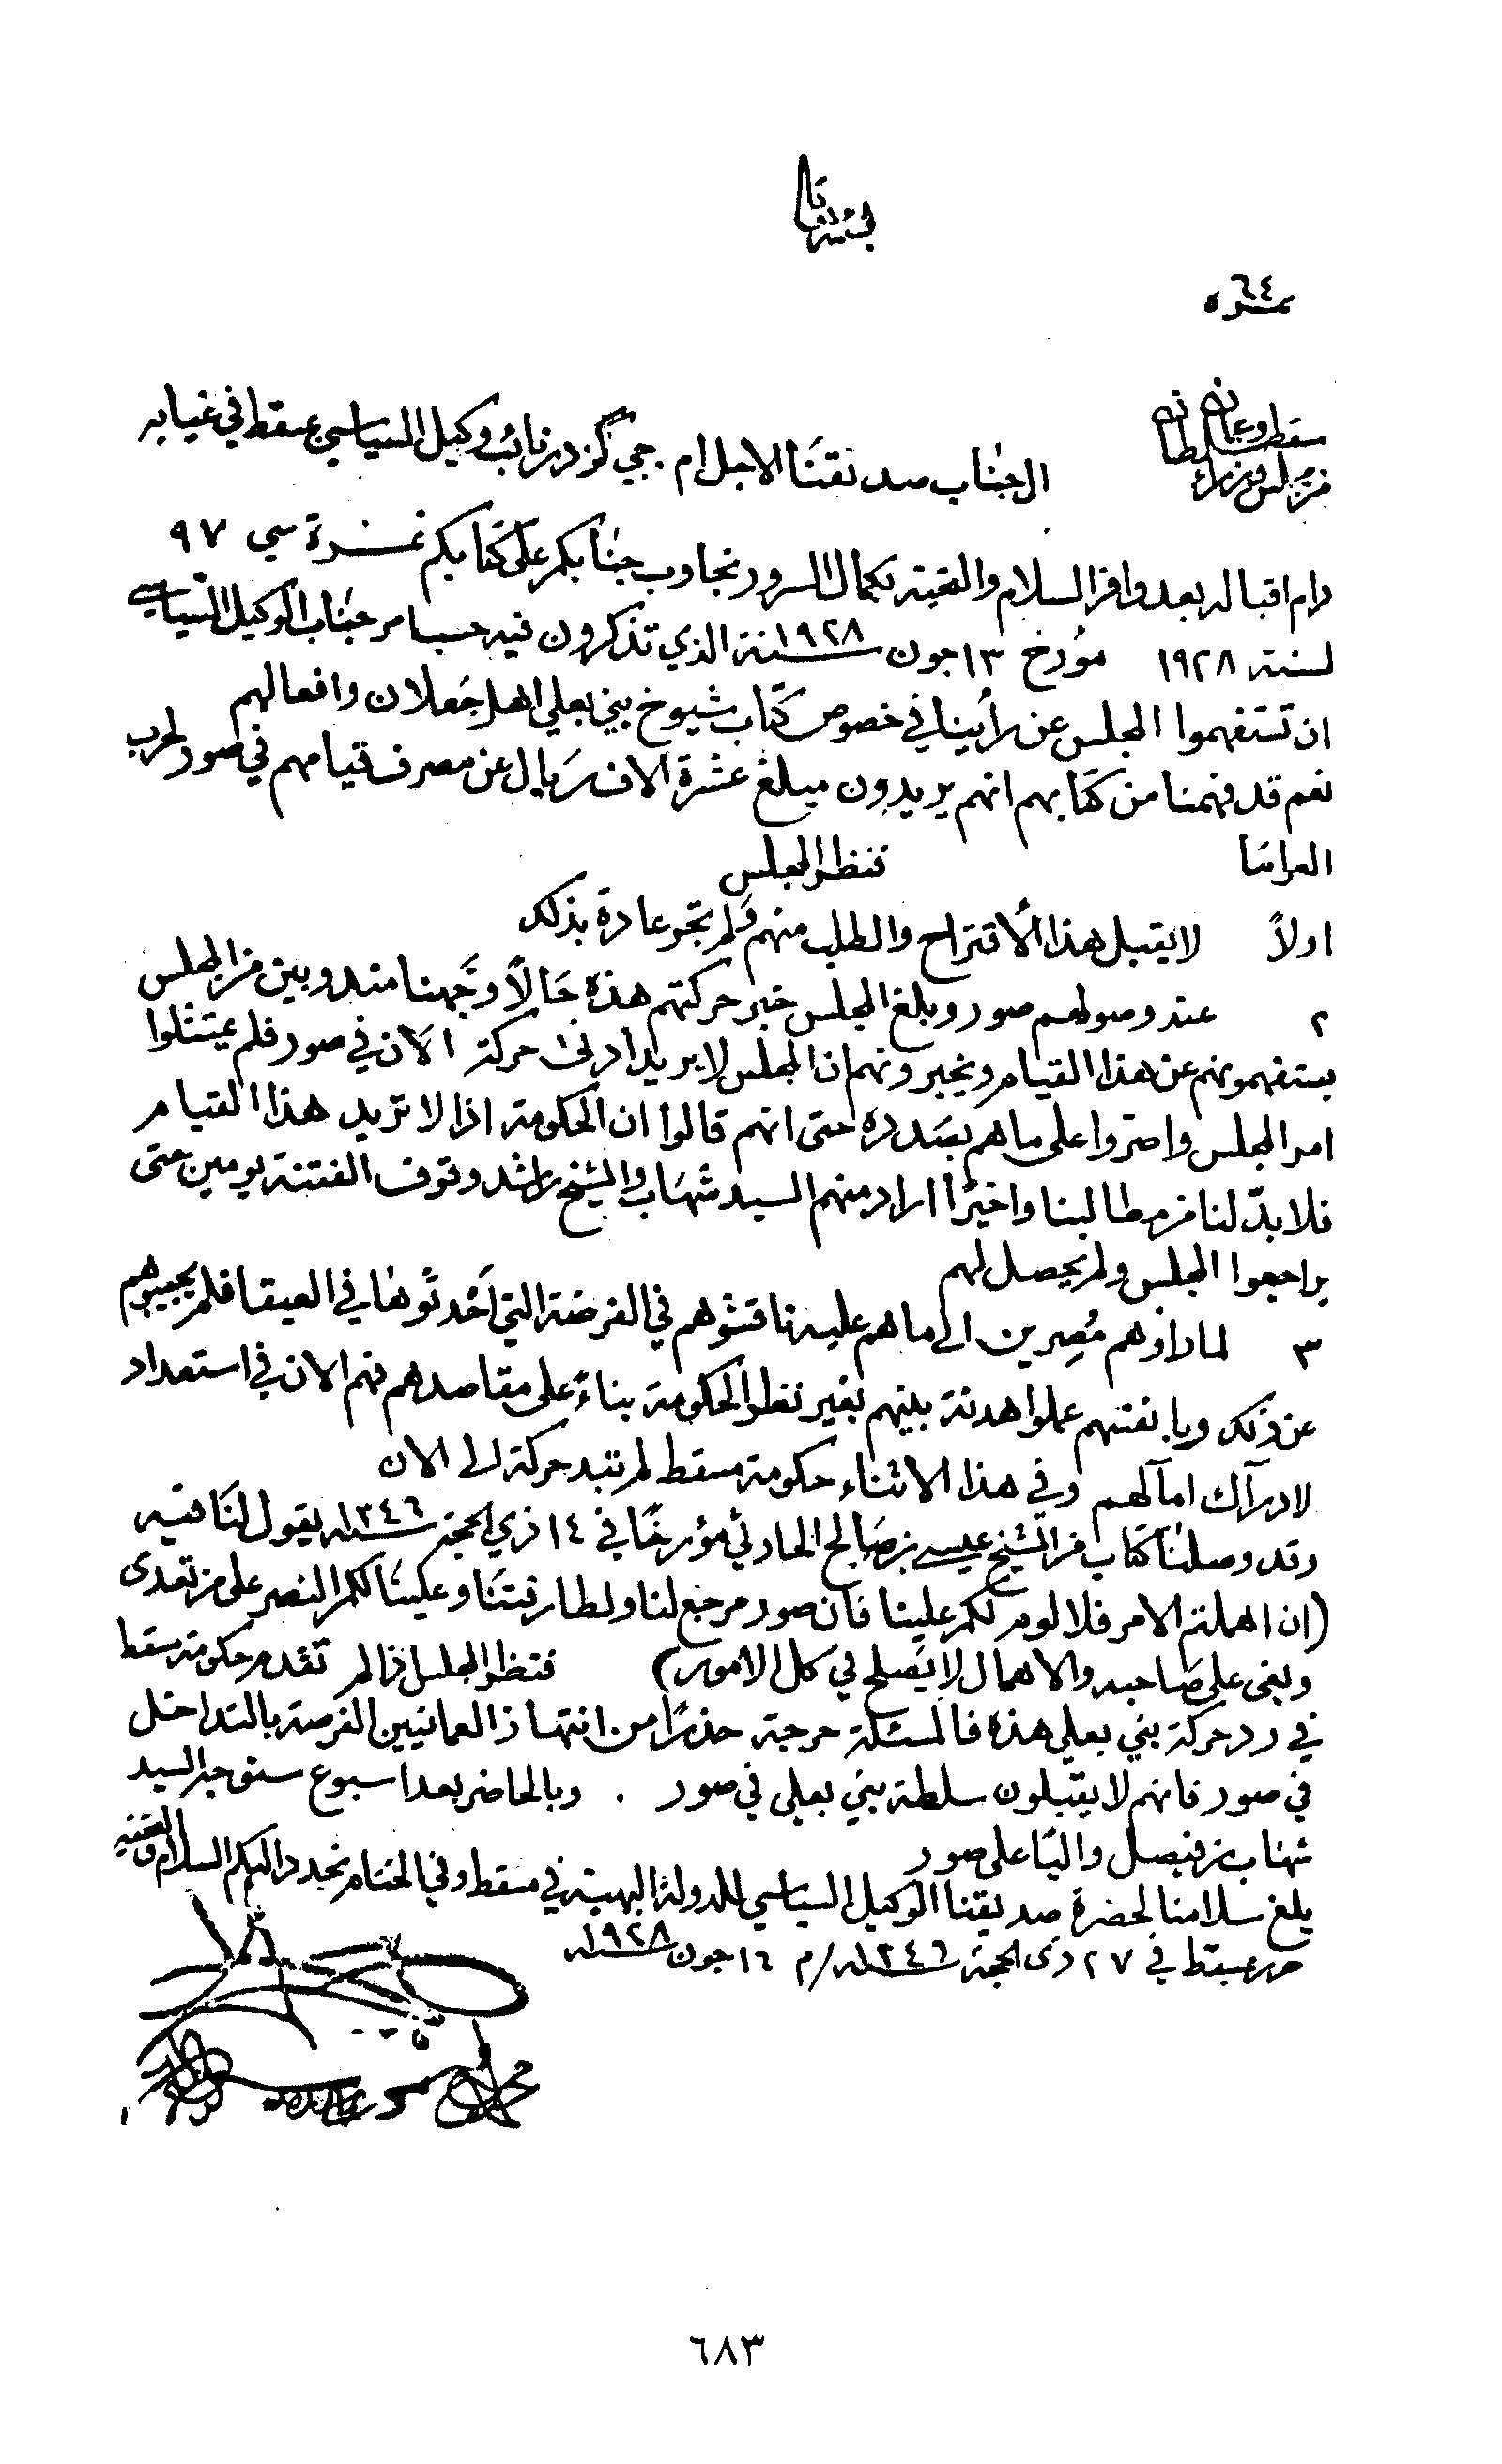 نمره ٦٤
من مجلس وزراء سلطانة مسقط وعمان
الى جناب صديقنا الاجل ام . جي گزدر نائب وكيل السياسي بمسقط في غيابه
دام اقباله بعد وافر السلام والتحية بكمال السرور نجاوب جنابكم على كتابكم نمرة سي ٩٧
لسنة ١٩٢٨ مؤرخ ١٣ جون سنة ١٩٢٨ الذي تذكرون فيه حسب امر جناب الوكيل السياسي
ان تستفهموا المجلس عن رأينا في خصوص كتاب شيوخ بني بعلي اهل جعلان وافعالهم
نعم قد فهمنا من كتابهم انهم يريدون مبلغ عشرة الاف ريال عن مصرف قيامهم في صور لحرب
العرامنا فنظر المجلس
اولاً لا يقبل هذا الاقتراح والطلب منهم فلم تجر عادة بذلك
٢ عند وصولهم صور وبلغ المجلس خبر حركتهم هذه حالاً وجهنا مندوبين من المجلس
يستفهمونهم عن هذا القيام ويخبرونهم ان المجلس لا يريد ادنى حركة الان في صور فلم يمتثلوا
امر المجلس واصروا على ما هم بصدده حتى انهم قالوا ان الحكومة اذا لا تريد هذا القيام
فلا بدّ لنا من مطالبنا واخيراً اراد منهم السيد شهاب والشيخ راشد وقوف الفتنة يومين حتى
يراجعوا المجلس ولم يحصل لهم
٣ لما رأوهم مُصِرين الى ما هم عليه ناقشوهم في الفرضة التي احدثوها في العيقا فلم يجيبوهم
عن ذلك وبانفسهم عملوا هدنة بينهم بغير نظر الحكومة بناءً على مقاصدهم فهم الان في استعداد
لادراك امآلهم وفي هذا الاثناء حكومة مسقط لم تبد حركة الى الان
وقد وصلنا كتاب من الشيخ عيسى بن صالح الحارثي مؤرخاً في ١٤ ذي الحجة سنة ١٣٤٦ يقول لنا فيه
(ان اهملتم الامر فلا لوم لكم علينا فان صور مرجع لنا ولطارفتنا وعلينا لكم النصر على من تعدى
وبغى على صاحبه والاهمال لا يصلح في كل الامور) فنظر المجلس اذا لم تقدم حكومة مسقط
في رد حركة بني بعلي هذه فالمسئلة حرجة حذراً من انتهاز العمانيين الفرصة بالتداخل
في صور فانهم لا يقبلون سلطة بني بعلي في صور . وبالحاضر بعد اسبوع سنوجه السيد
شهاب بن فيصل والياً على صور
يلغ سلامنا لحضرة صديقنا الوكيل السياسي للدولة البهية في مسقط وفي الختام نجدد اليكم السلام والتحية
حرر بمسقط في ٢٧ ذي الحجة سنة ١٣٤٦/م ١٦ جون سنة ١٩٢٨
٦٨٣